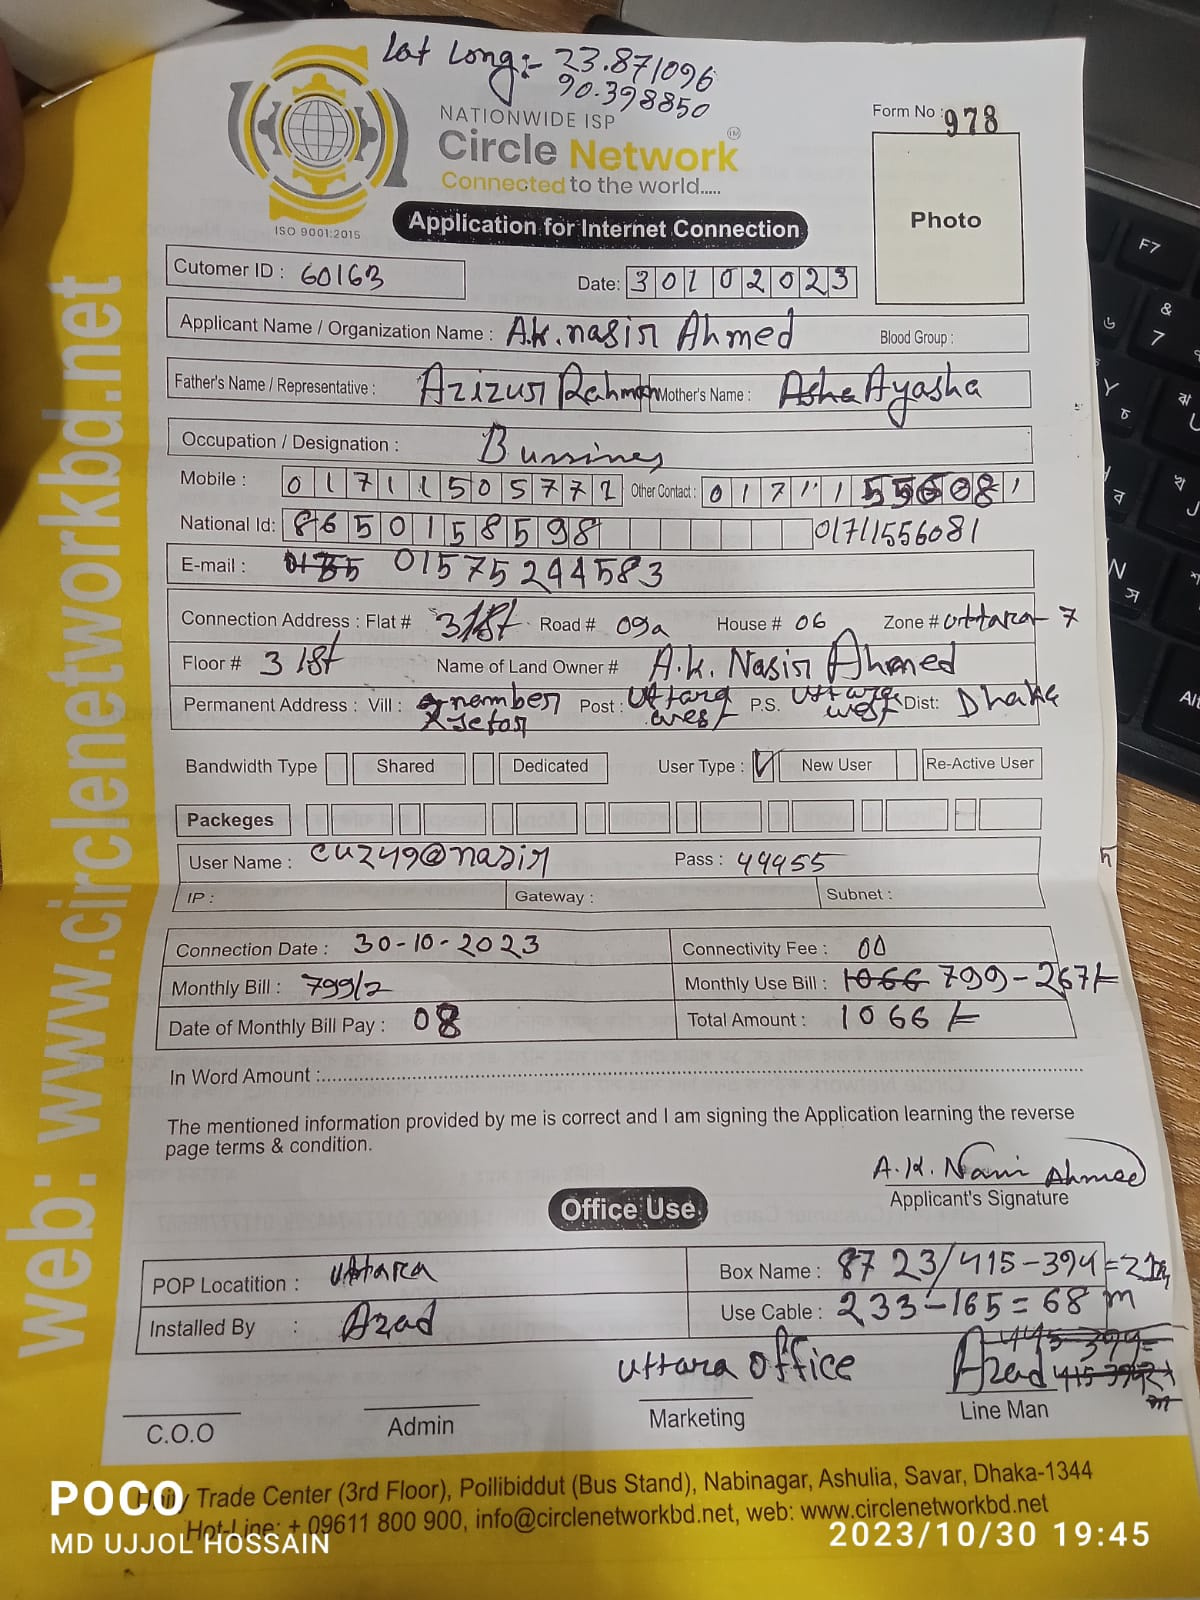 Lat Long:- 23.871096
90.398850
NATIONWIDE ISP
Circle Network
Connected to the world.....
ISO 9001:2015
Form No : 978
Photo
Application for Internet Connection
Cutomer ID : 60163
Date: 30102023
Applicant Name / Organization Name : A.K. nasir Ahmed Blood Group :
Father's Name / Representative : Azizur Rahman Mother's Name : Asha Ayasha
Occupation / Designation : Bussines
Mobile : 01711505772 Other Contact : 01711556081
National Id: 8650158598 01711556081
E-mail : 01575244583
Connection Address : Flat # 31st Road # 09a House # 06 Zone # uttara 7
Floor # 31st Name of Land Owner # A.K. Nasir Ahmed
Permanent Address : Vill : 7 namber Post : Uttara P.S. Uttara Dist: Dhaka
setor west west
Bandwidth Type Shared Dedicated User Type : ✓ New User Re-Active User
Packeges
User Name : cu2449@nasir Pass : 44455
IP : Gateway : Subnet :
Connection Date : 30-10-2023 Connectivity Fee : 00
Monthly Bill : 799/2 Monthly Use Bill : 1066 799-267/-
Date of Monthly Bill Pay : 08 Total Amount : 1066/-
In Word Amount :
The mentioned information provided by me is correct and I am signing the Application learning the reverse
page terms & condition.
A.K. Nasir Ahmed
Applicant's Signature
Office Use
POP Locatition : Uttara Box Name : 87 23/415-394=21m
Installed By : Azad Use Cable : 233-165=68 m
uttara office Azad
C.O.O Admin Marketing Line Man
Trade Center (3rd Floor), Pollibiddut (Bus Stand), Nabinagar, Ashulia, Savar, Dhaka-1344
Hot-Line: + 09611 800 900, info@circlenetworkbd.net, web: www.circlenetworkbd.net
web: www.circlenetworkbd.net
POCO
MD UJJOL HOSSAIN
2023/10/30 19:45
F7
&
7
Y
N
Alt